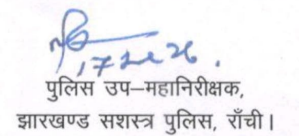 पुलिस उप–महानिरीक्षक,
झारखण्ड सशस्त्र पुलिस, राँची।